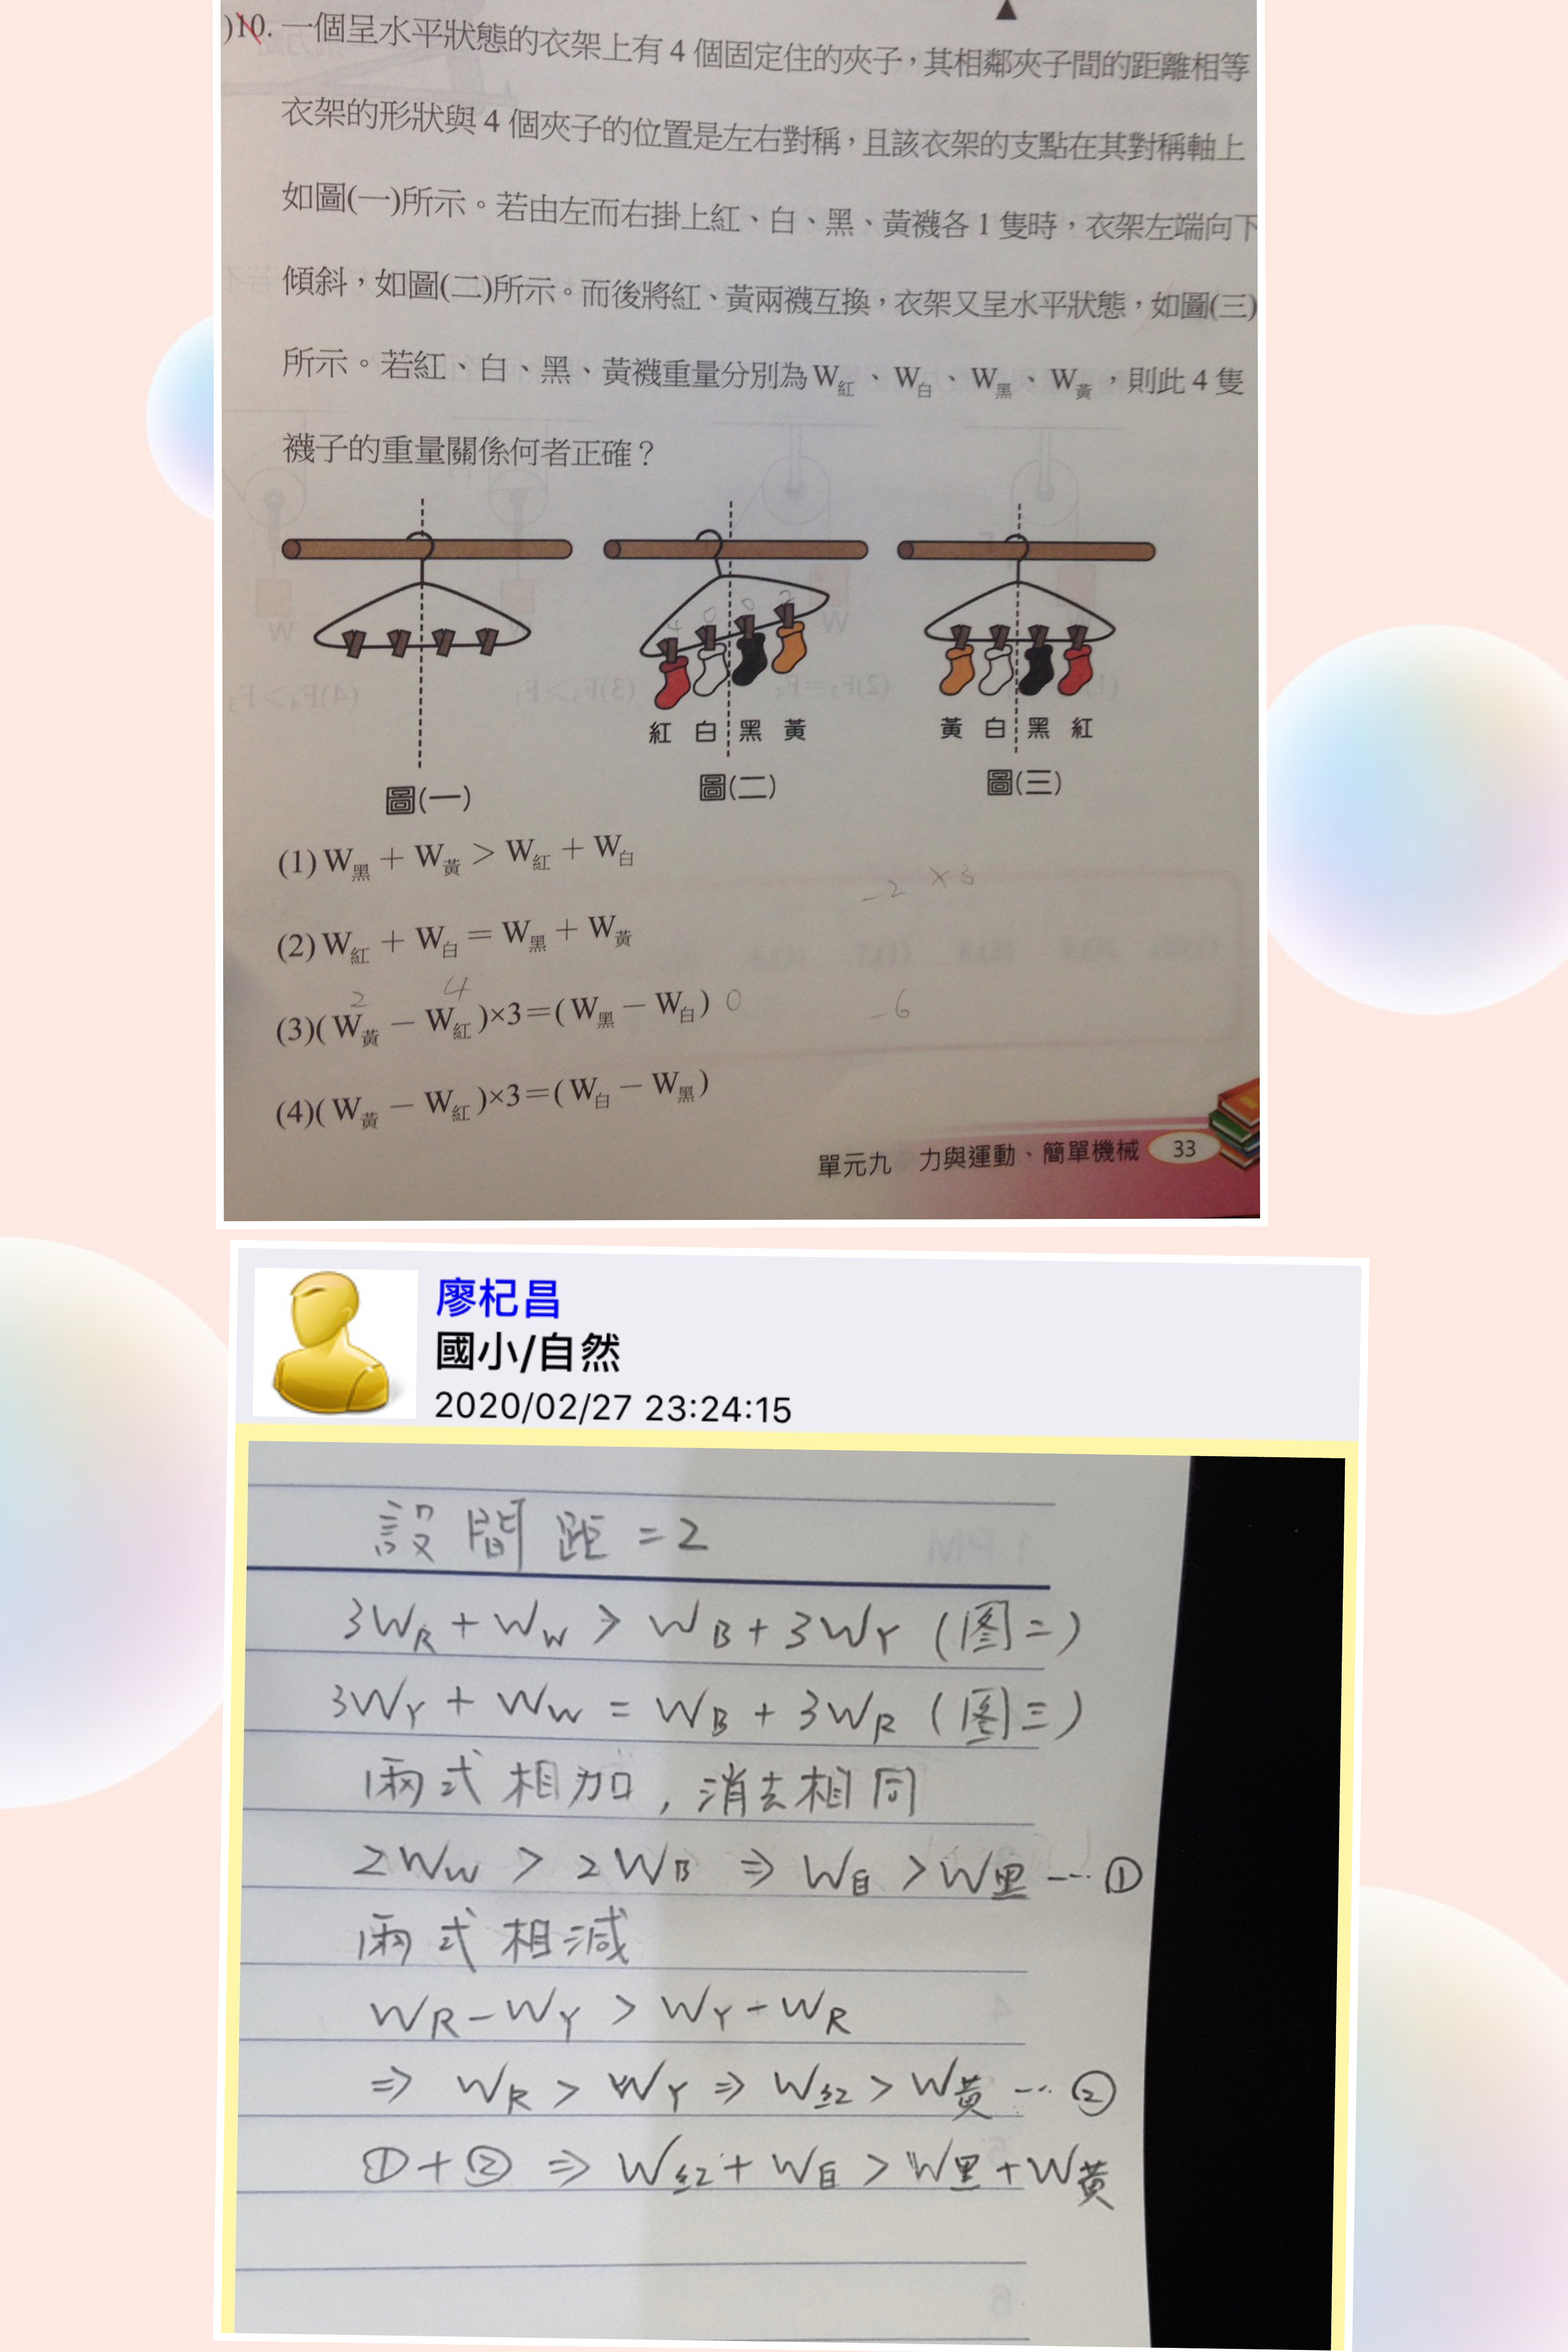 )10. 一個呈水平狀態的衣架上有 4 個固定住的夾子，其相鄰夾子間的距離相等
衣架的形狀與 4 個夾子的位置是左右對稱，且該衣架的支點在其對稱軸上
如圖(一)所示。若由左而右掛上紅、白、黑、黃襪各 1 隻時，衣架左端向下
傾斜，如圖(二)所示。而後將紅、黃兩襪互換，衣架又呈水平狀態，如圖(三)
所示。若紅、白、黑、黃襪重量分別為 W紅、W白、W黑、W黃，則此 4 隻
襪子的重量關係何者正確？
4 0 0 2
紅 白 黑 黃
黃 白 黑 紅
圖(一)
圖(二)
圖(三)
(1) W黑 + W黃 > W紅 + W白
-2 ×3
(2) W紅 + W白 = W黑 + W黃
2 4
(3)( W黃 － W紅 )×3=( W黑 － W白 ) 0
-6
(4)( W黃 － W紅 )×3=( W白 － W黑 )
單元九 力與運動、簡單機械 33
廖杞昌
國小/自然
2020/02/27 23:24:15
設間距 = 2
3WR + WW > WB + 3WY (图二)
3WY + WW = WB + 3WR (图三)
兩式相加，消去相同
2WW > 2WB ⇒ W白 > W黑 ... ①
兩式相減
WR - WY > WY - WR
⇒ WR > WY ⇒ W紅 > W黃 ... ②
① + ② ⇒ W紅 + W白 > W黑 + W黃